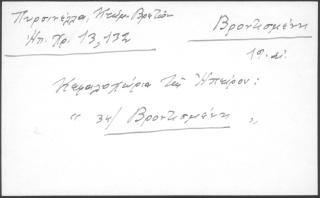 Πυρσινέλλα, Κτιμ. Βρετών
Ἠπ. Χρ. 13, 132
Βροντισμένη
19. αἰ.
Κεφαλοχώρια τῆς Ἠπείρου:
" 34/ Βροντισμένη "